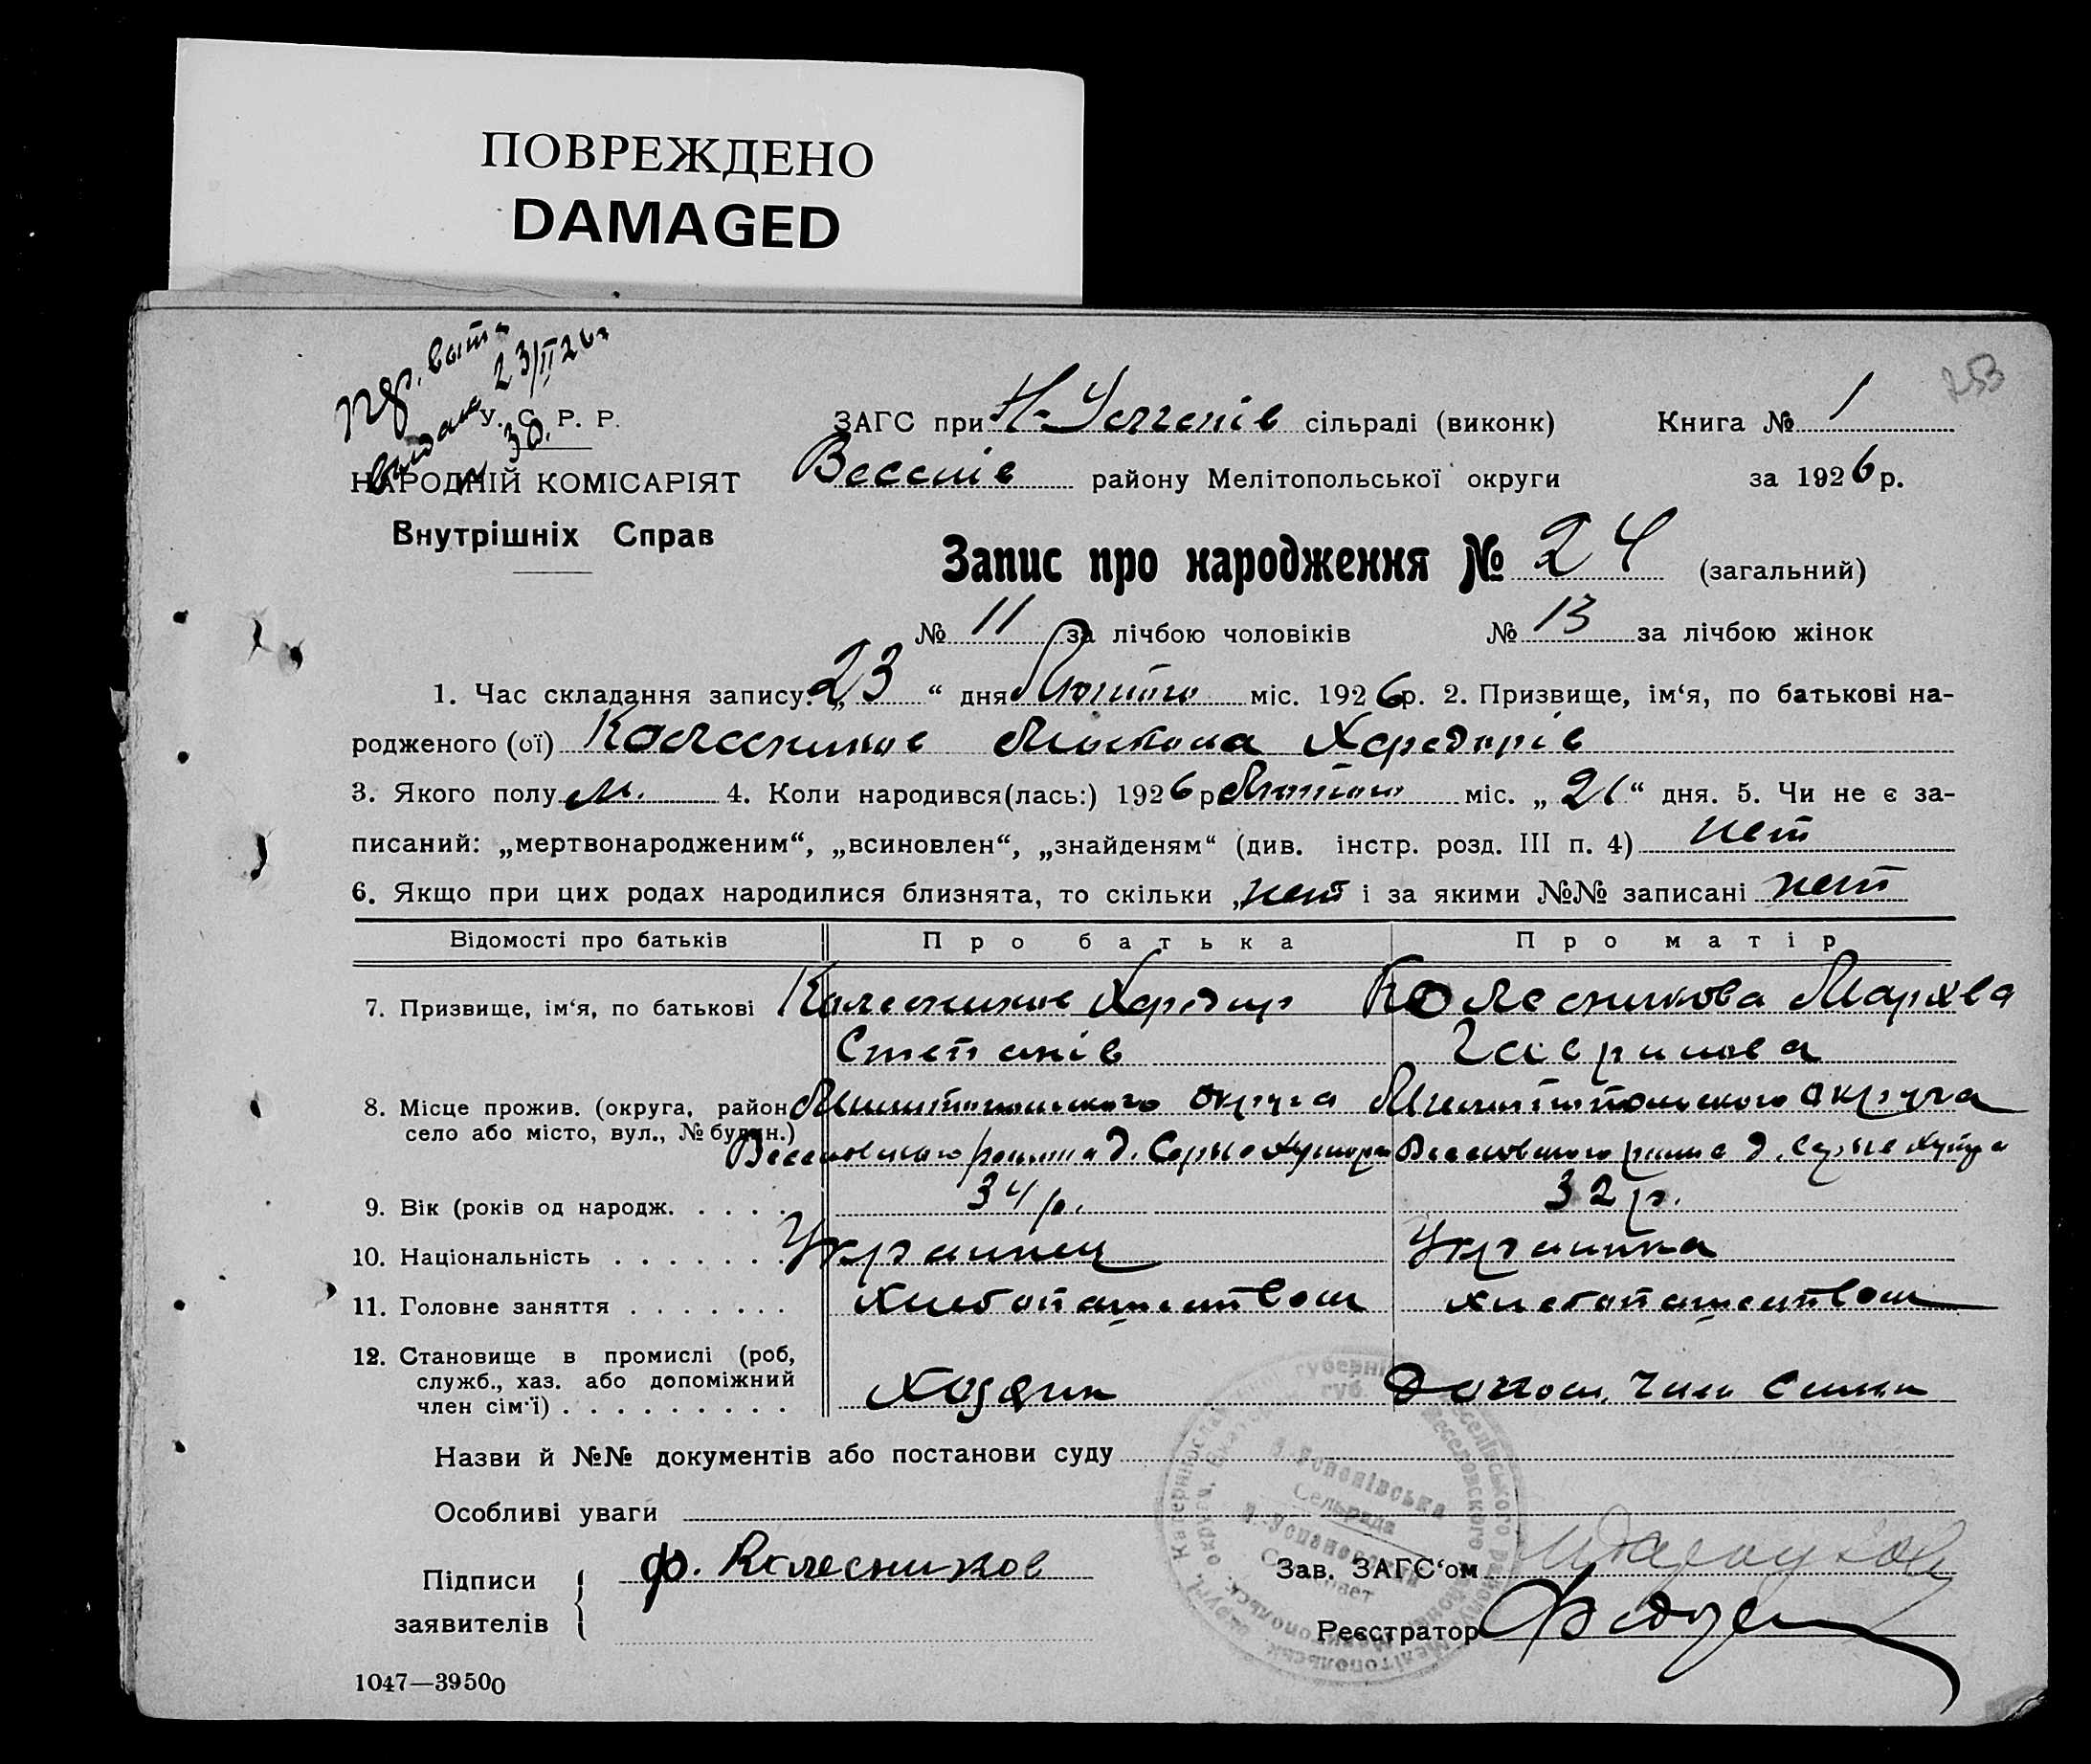 ПОВРЕЖДЕНО
DAMAGED
253
23/II 26
№ 30.
У. С. Р. Р.
НАРОДНІЙ КОМІСАРІЯТ
Внутрішніх Справ
ЗАГС при Н-Успенів сільраді (виконк) Книга № 1
Веселів району Мелітопольської округи за 1926 р.
Запис про народження № 24 (загальний)
№ 11 за лічбою чоловіків № 13 за лічбою жінок
1. Час складання запису: „23“ дня Лютого міс. 1926 р. 2. Призвище, ім‘я, по батькові на-
родженого (ої) Колесников Микола Хведорів
3. Якого полу м. 4. Коли народився(лась:) 1926 р Лютого міс. „21“ дня. 5. Чи не є за-
писаний: „мертвонародженим“, „всиновлен“, „знайденям“ (див. інстр. розд. III п. 4) нет
6. Якщо при цих родах народилися близнята, то скільки „нет і за якими №№ записані нет
Відомості про батьків Про батька Про матір
7. Призвище, ім‘я, по батькові Колесников Хведир Колесникова Мархва
Степанів Гаврилова
8. Місце прожив. (округа, район Мелитопольского округа Мелитопольского округа
село або місто, вул., № будин.) Веселовского района д. Серые Хутора Веселовского района д. Серые Хутора
9. Вік (років од народж. . . . . 34 р. 32 р.
10. Національність . . . . . . . Украинец Украинка
11. Головне заняття . . . . . . . хлебопашеством хлебопашеством
12. Становище в промислі (роб,
служб., хаз. або допоміжний Хозяин Допом. член семьи
член сім‘ї) . . . . . . . . .
Назви й №№ документів або постанови суду
Особливі уваги
Н.-Успенівська
Сельрада
Підписи заявителів Ф. Колесников
Зав. ЗАГС‘ом
Реєстратор
1047—39500